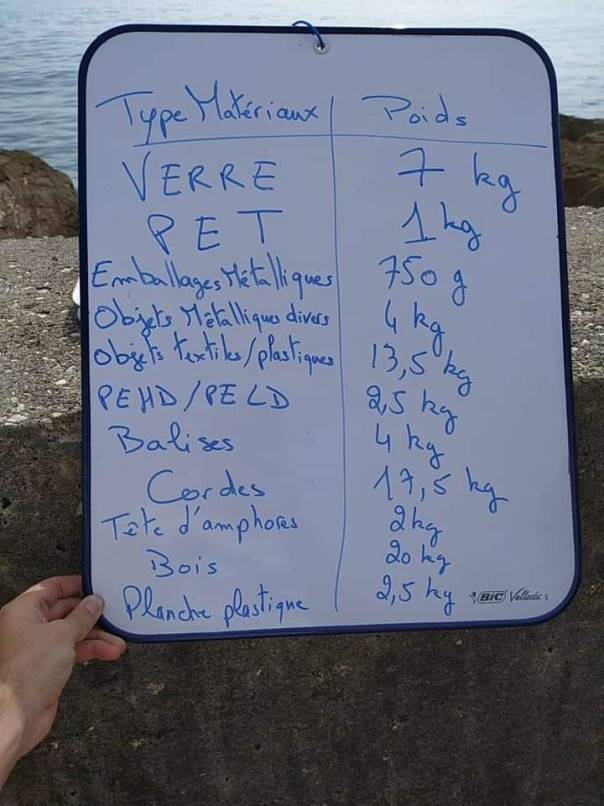 Type Matériaux Poids
VERRE 7 kg
PET 1 kg
Emballages Métalliques 750 g
Objets Métalliques divers 4 kg
Objets textiles/plastiques 13,5 kg
PEHD/PELD 2,5 kg
Balises 4 kg
Cordes 17,5 kg
Tête d'amphores 2 kg
Bois 20 kg
Planche plastique 2,5 kg
BIC Velleda